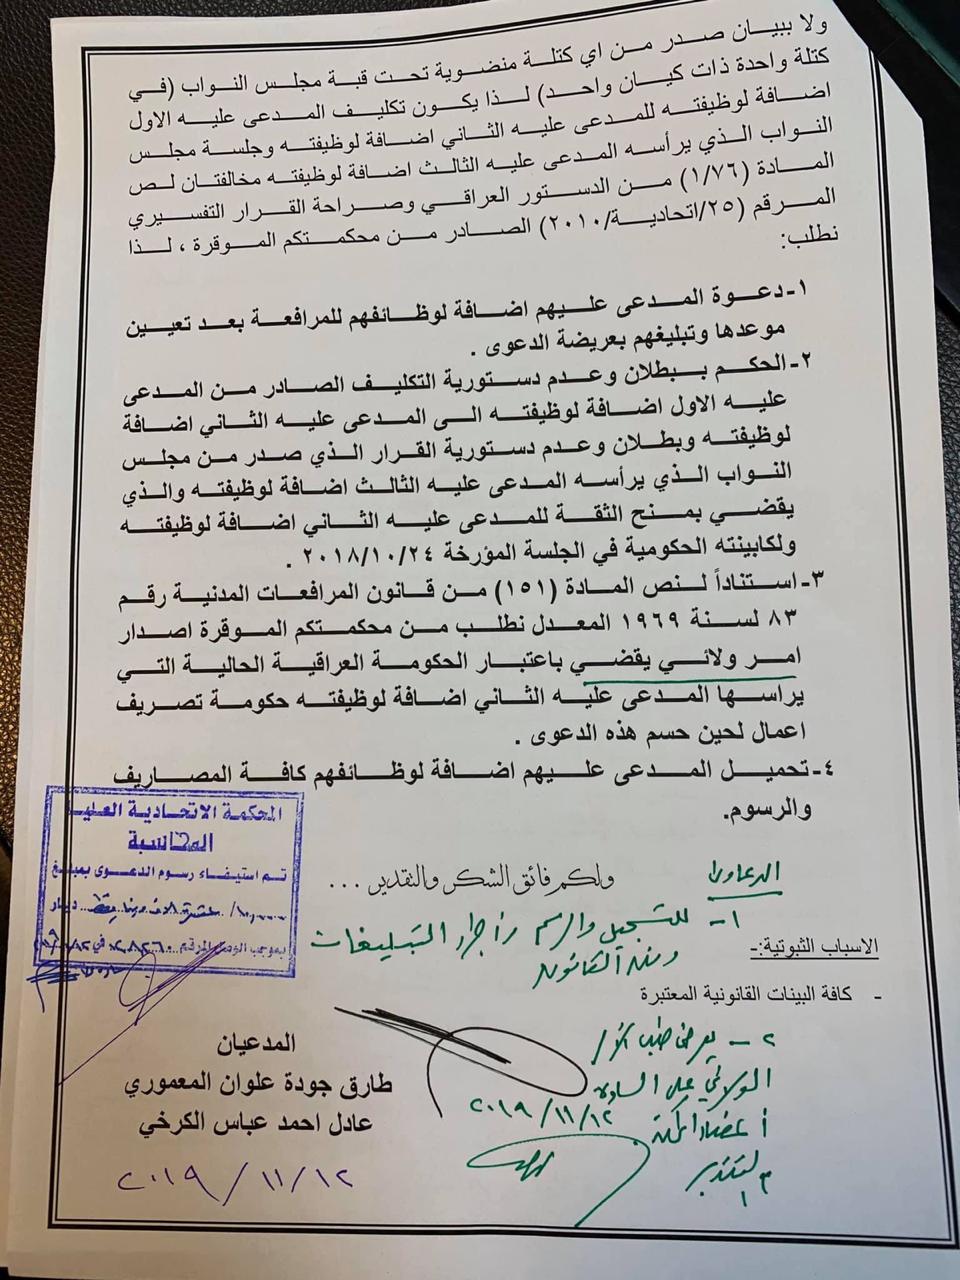 ولا ببيان صدر من اي كتلة منضوية تحت قبة مجلس النواب (في
كتلة واحدة ذات كيان واحد) لذا يكون تكليف المدعى عليه الاول
اضافة لوظيفته للمدعى عليه الثاني اضافة لوظيفته وجلسة مجلس
النواب الذي يرأسه المدعى عليه الثالث اضافة لوظيفته مخالفتان لص
المادة (١/٧٦) من الدستور العراقي وصراحة القرار التفسيري
المرقم (٢٥/اتحادية/٢٠١٠) الصادر من محكمتكم الموقرة ، لذا
نطلب:
١-دعوة المدعى عليهم اضافة لوظائفهم للمرافعة بعد تعيين
موعدها وتبليغهم بعريضة الدعوى .
٢-الحكم ببطلان وعدم دستورية التكليف الصادر من المدعى
عليه الاول اضافة لوظيفته الى المدعى عليه الثاني اضافة
لوظيفته وبطلان وعدم دستورية القرار الذي صدر من مجلس
النواب الذي يرأسه المدعى عليه الثالث اضافة لوظيفته والذي
يقضي بمنح الثقة للمدعى عليه الثاني اضافة لوظيفته
ولكابينته الحكومية في الجلسة المؤرخة ٢٠١٨/١٠/٢٤ .
٣-استناداً لنص المادة (١٥١) من قانون المرافعات المدنية رقم
٨٣ لسنة ١٩٦٩ المعدل نطلب من محكمتكم الموقرة اصدار
امر ولائي يقضي باعتبار الحكومة العراقية الحالية التي
يراسها المدعى عليه الثاني اضافة لوظيفته حكومة تصريف
اعمال لحين حسم هذه الدعوى .
٤-تحميل المدعى عليهم اضافة لوظائفهم كافة المصاريف
والرسوم.
المحكمة الاتحادية العليا
المحاسبة
تم استيفاء رسوم الدعوى بمبلغ
دينار
بموجب الوصل المرقم
ولكم فائق الشكر والتقدير ...
١- للتسجيل والرسم واجراء التبليغات
وفق القانون
الاسباب الثبوتية:-
- كافة البينات القانونية المعتبرة
٢- يعرض طلب الأمر
الولائي على السادة
أعضاء المحكمة
٢٠١٩/١١/١٢
المدعيان
طارق جودة علوان المعموري
عادل احمد عباس الكرخي
٢٠١٩/١١/١٢